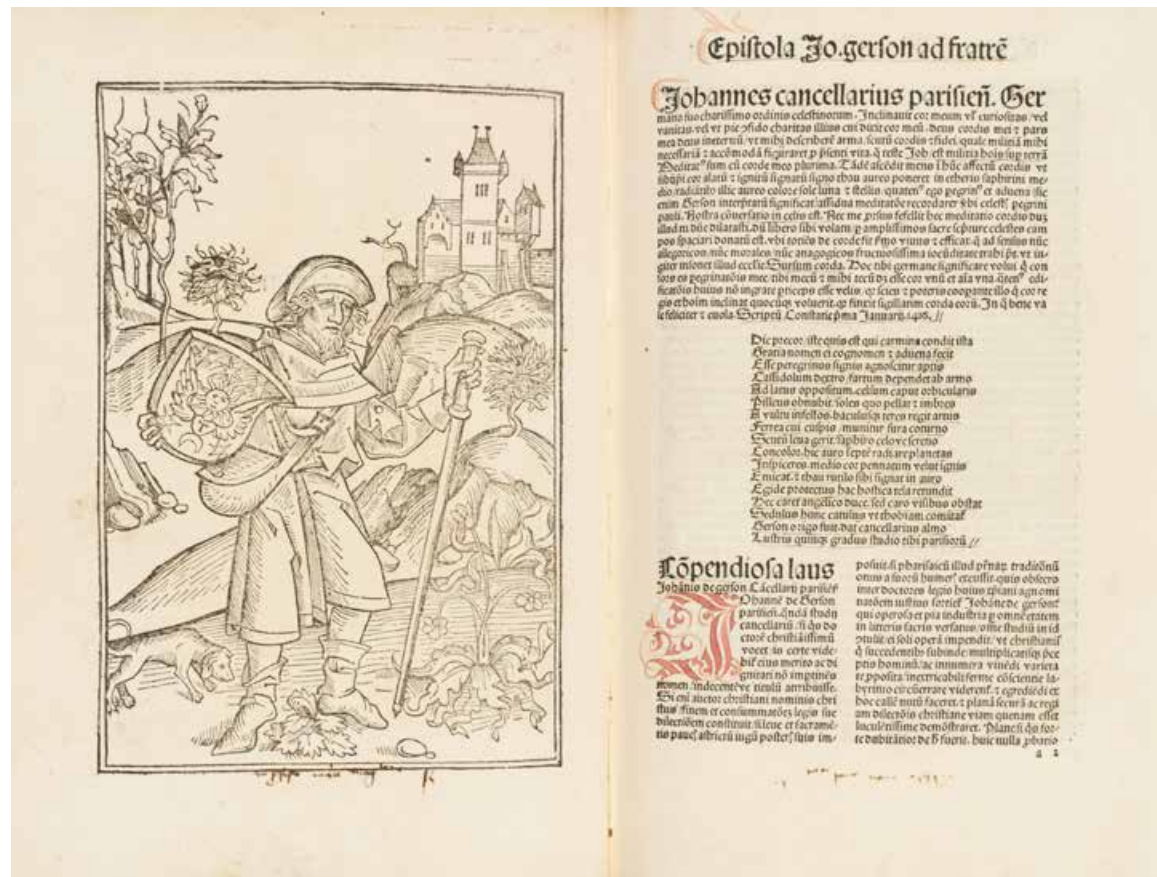 Epistola Jo. gerson ad fratrē
Johannes cancellarius parisieñ. Ger
mano suo charissimo ordinis celestinorum. Inclinauit cor meum vel curiositas vel
vanitas, vel vt pie ↄfido charitas illius cui dicit cor meū, deus cordis mei ⁊ pars
mea deus ineternū, vt mihi describerē arma, scutū cordis ⁊ fidei, quale militiā mihi
necessariā ⁊ accōmodā figuraret p pñti vita. q̄ teste Job est militia hoīs sup terrā
Meditatus sum cū corde meo plurima. Tādē ascēdit mens ī hūc affectū cordis vt
cor alatū ⁊ ignitū signatū signo thau aureo poneret in etherio saphirini me-
dio, radiātib illic aureo colore sole luna ⁊ stellis, quatenus ego pegrinus et aduena sic
enim Gerson interptatū significat assidua meditatōe recordarer celesti pegrini
pauli. Nostra cōuersatio in celis est. Nec me prsus fefellit hec meditatio cordis
illud in dūc dilatasti, dū libero sibi volatu p amplissimos sacre scpture celestes cam
pos spaciari donatū est, vbi toties de corde fit smo viuus ⁊ efficax, q̄ ad sensus nūc
allegoricos nūc morales nūc anagogicos fructuosissima iocūditate trahi pt, vt iu-
giter illud ecclie Sursum corda. Hoc tibi germane significare volui, q̄ con
sors es pegrinatiōis mee, tibi mecū ⁊ mihi tecū esse cor vnū et aīa vna, edi-
ficatiōis huius nō ingrate pticeps esse velis, scien ⁊ poteris coopante illo q̄ cor re
gis et hoīm inclinat quocūqs voluerit, q̄ finxit sigillatim corda eorū. In q̄ bene va
le feliciter ⁊ euola. Scriptū Constātie pma Januarij. 1416. //
Dic precor iste quis est qui carmina condit ista
Gratia nomen ei cognomen ⁊ aduena fecit
Esse peregrinus signis agnoscitur aptis
Cassidolum dextro fartum dependet ab armo
Ad latus oppositum, celsum caput orbicularis
Pilleus obnubit, soles quo pellat ⁊ imbres
A vultu infestos, baculusqs teres regit artus
Ferrea cui cuspis, munitur sura coturno
Scutū leua gerit, saphiro celove sereno
Concolor, hic auro septē radiare planetas
Inspiceres, medio cor pennatum velut ignis
Emicat, ⁊ thau rutilo sibi signat in auro
Egide protectus hac hostica tela rerundit
Nec caret angelico duce, sed caro visibus obstat
Sedulus hunc catulus vt thobiam comitat
Gerson origo fuit, dat cancellarius almo
Lustris quinqs gradus studio tibi parisiorū //
Cōpendiosa laus
Johānis de gerson Cācellarij parisieñ
Ohannē de Gerson
parisieñ. q̄ndā studij
cancellariū, si q̄s do
ctorē christiāissimū
vocet, is certe vide-
bit eius merito ac di
gnitati nō imptinēs
nomen, indecentēve titulū attribuisse.
Si eñ auctor christiani nominis chri
stus, finem et consummatōez legis sue
dilectiōem constituit, si leue et sacramē-
tis paucis astrictū iugū posteris suis im-
posuit, si pharisaicū illud traditōnū
onus a suorū humeris excussit, quis obsecro
inter doctores legis huius xpiani agnomi
natōem iustius sortiet Johāne de gerson
qui operosa et pia industria p omnē etatem
in litteris sacris versatus, ome studiū in id
ↄtulit, et soli operā impendit, vt christianis
q̄ succedentib subinde multiplicatisqs pce
ptis hominū, ac innumera viuēdi varieta
te pposita, inextricabili ferme cōscientie la-
byrinto circūerrare viderent, ⁊ egrediēdi ex
hoc callē nutū faceret, ⁊ planā securā ac regi
am dilectōis christiane viam quenam esset
luculētissime demōstraret. Plane si q̄s for-
te dubitās, huic nulla pbatio
a 2